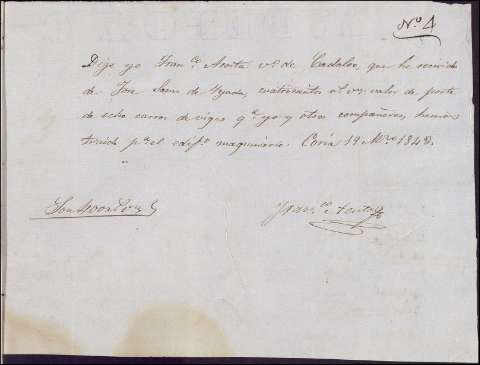 Nº 4
Digo yo Franco Acosta vº de Cadalso, que he recivido
de José Sanz de Tejada, cuatrocientos rs vn valor de porte
de ocho carros de vigas qe yo y otros compañeros, hemos
traido pa el edifo maquinario. Coria 19 Mzo 1848.
Son 400 rs vn
Franco Acosta